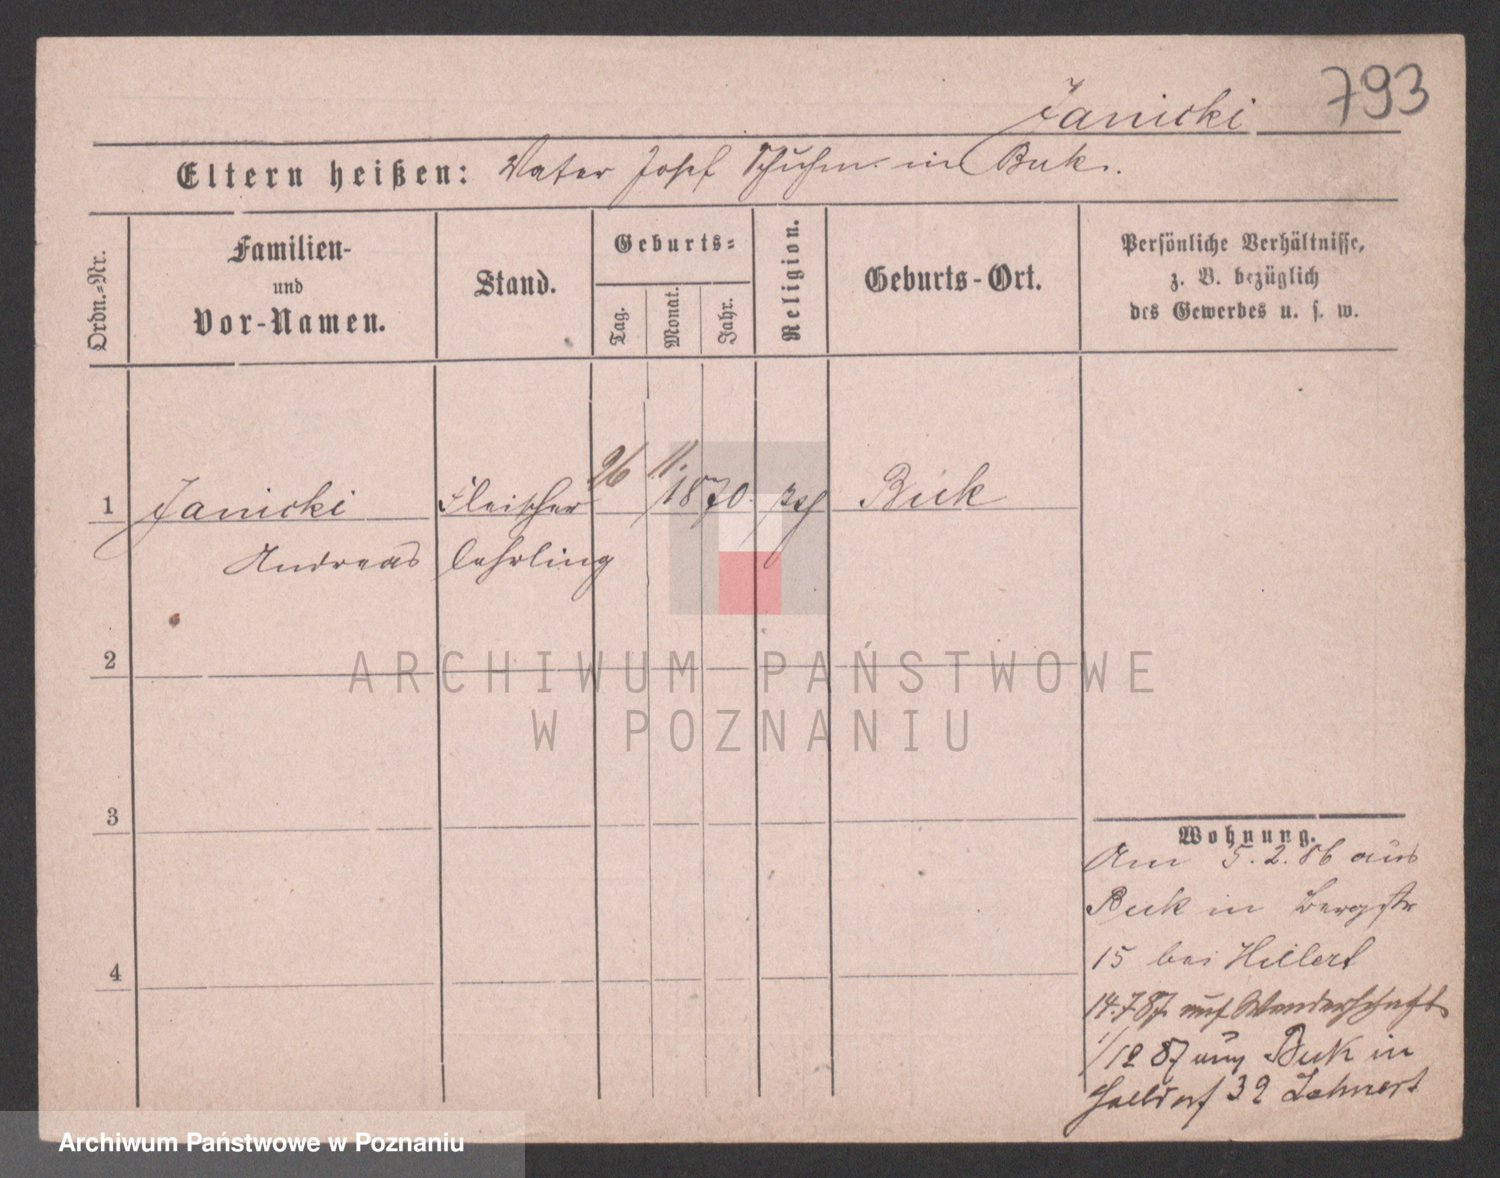 793
Janicki
Eltern heißen: Vater Josef Schuhm. in Buk.
Ordn.-Nr.
Familien-
und
Vor-Namen.
Stand.
Geburts-
Tag.
Monat.
Jahr.
Religion.
Geburts-Ort.
Persönliche Verhältnisse,
z. B. bezüglich
des Gewerbes u. s. w.
1 Janicki Fleischer 26 11. 1870. Buk
Andreas lehrling
2
3
4
Wohnung.
Am 5.2.86 aus
Buk in Bergstr
15 bei Hillert
14.7 87. auf Wanderschaft
1/12 87 aus Buk in
Halldorf 32 Lehnert
ARCHIWUM PAŃSTWOWE
W POZNANIU
Archiwum Państwowe w Poznaniu